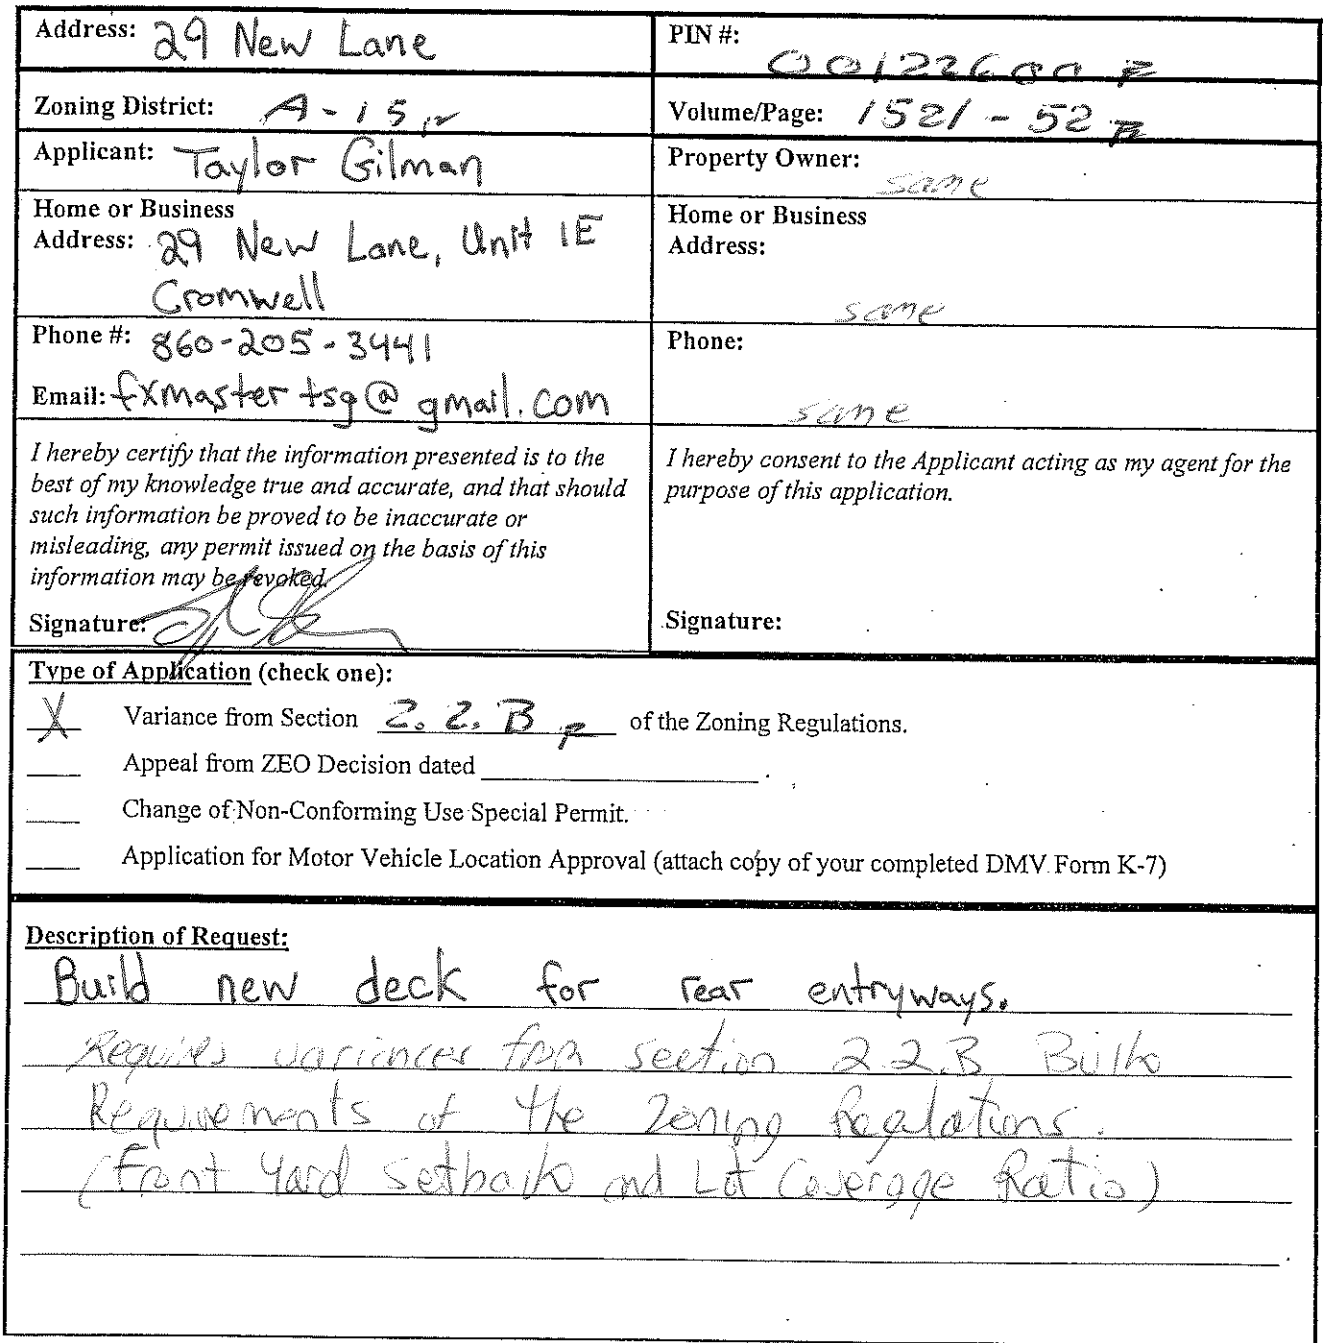 Address: 29 New Lane
PIN #: 00122600
Zoning District: A-15
Volume/Page: 1521-52
Applicant: Taylor Gilman
Property Owner: same
Home or Business
Address: 29 New Lane, Unit 1E
Cromwell
Home or Business
Address:
same
Phone #: 860-205-3441
Email: fxmastertsg@gmail.com
Phone:
same
I hereby certify that the information presented is to the
best of my knowledge true and accurate, and that should
such information be proved to be inaccurate or
misleading, any permit issued on the basis of this
information may be revoked.
Signature:
I hereby consent to the Applicant acting as my agent for the
purpose of this application.
Signature:
Type of Application (check one):
X Variance from Section 2.2.B of the Zoning Regulations.
Appeal from ZEO Decision dated
Change of Non-Conforming Use Special Permit.
Application for Motor Vehicle Location Approval (attach copy of your completed DMV Form K-7)
Description of Request:
Build new deck for rear entryways.
Requires variances from section 2.2.B Bulk
Requirements of the Zoning Regulations.
(Front Yard Setback and Lot Coverage Ratio)